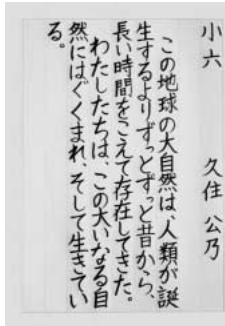 小六　久住 公乃
この地球の大自然は、人類が誕
生するよりずっとずっと昔から、
長い時間をこえて存在してきた。
わたしたちは、この大いなる自
然にはぐくまれ、そして生きてい
る。